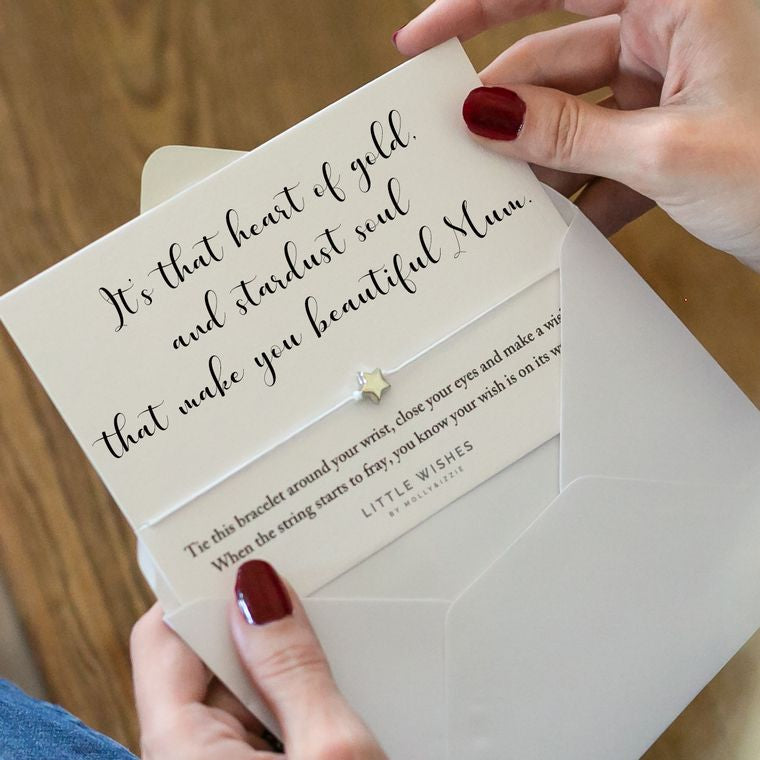 It's that heart of gold,
and stardust soul
that make you beautiful Mum.
Tie this bracelet around your wrist, close your eyes and make a
When the string starts to fray, you know your wish is on its
LITTLE WISHES
BY MOLLY&IZZIE